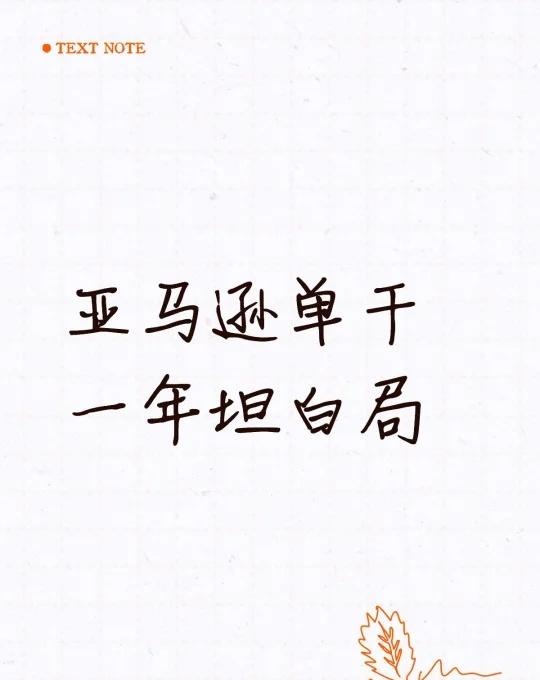 TEXT NOTE
亚马逊单干
一年坦白局